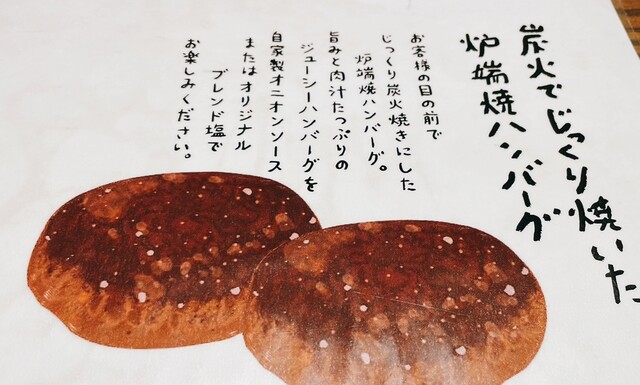 炭火でじっくり焼いた
炉端焼ハンバーグ
お客様の目の前で
じっくり炭火焼きにした
炉端焼ハンバーグ。
旨みと肉汁たっぷりの
ジューシーハンバーグを
自家製オニオンソース
またはオリジナル
ブレンド塩で
お楽しみください。